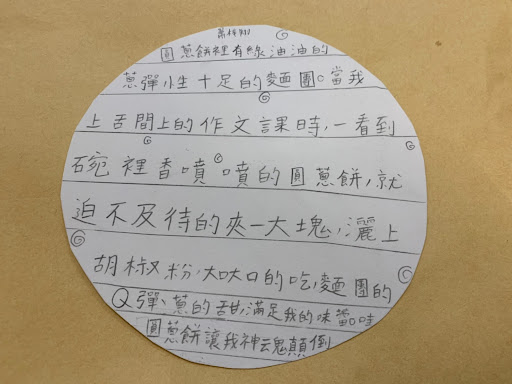 圓蔥餅裡有綠油油的
蔥彈性十足的麵團。當我
上舌間上的作文課時,一看到
碗裡香噴噴的圓蔥餅,就
迫不及待的夾一大塊,灑上
胡椒粉,大口大口的吃,麵團的
Q彈、蔥的甜,滿足我的味蕾哇
圓蔥餅讓我神云鬼顛倒